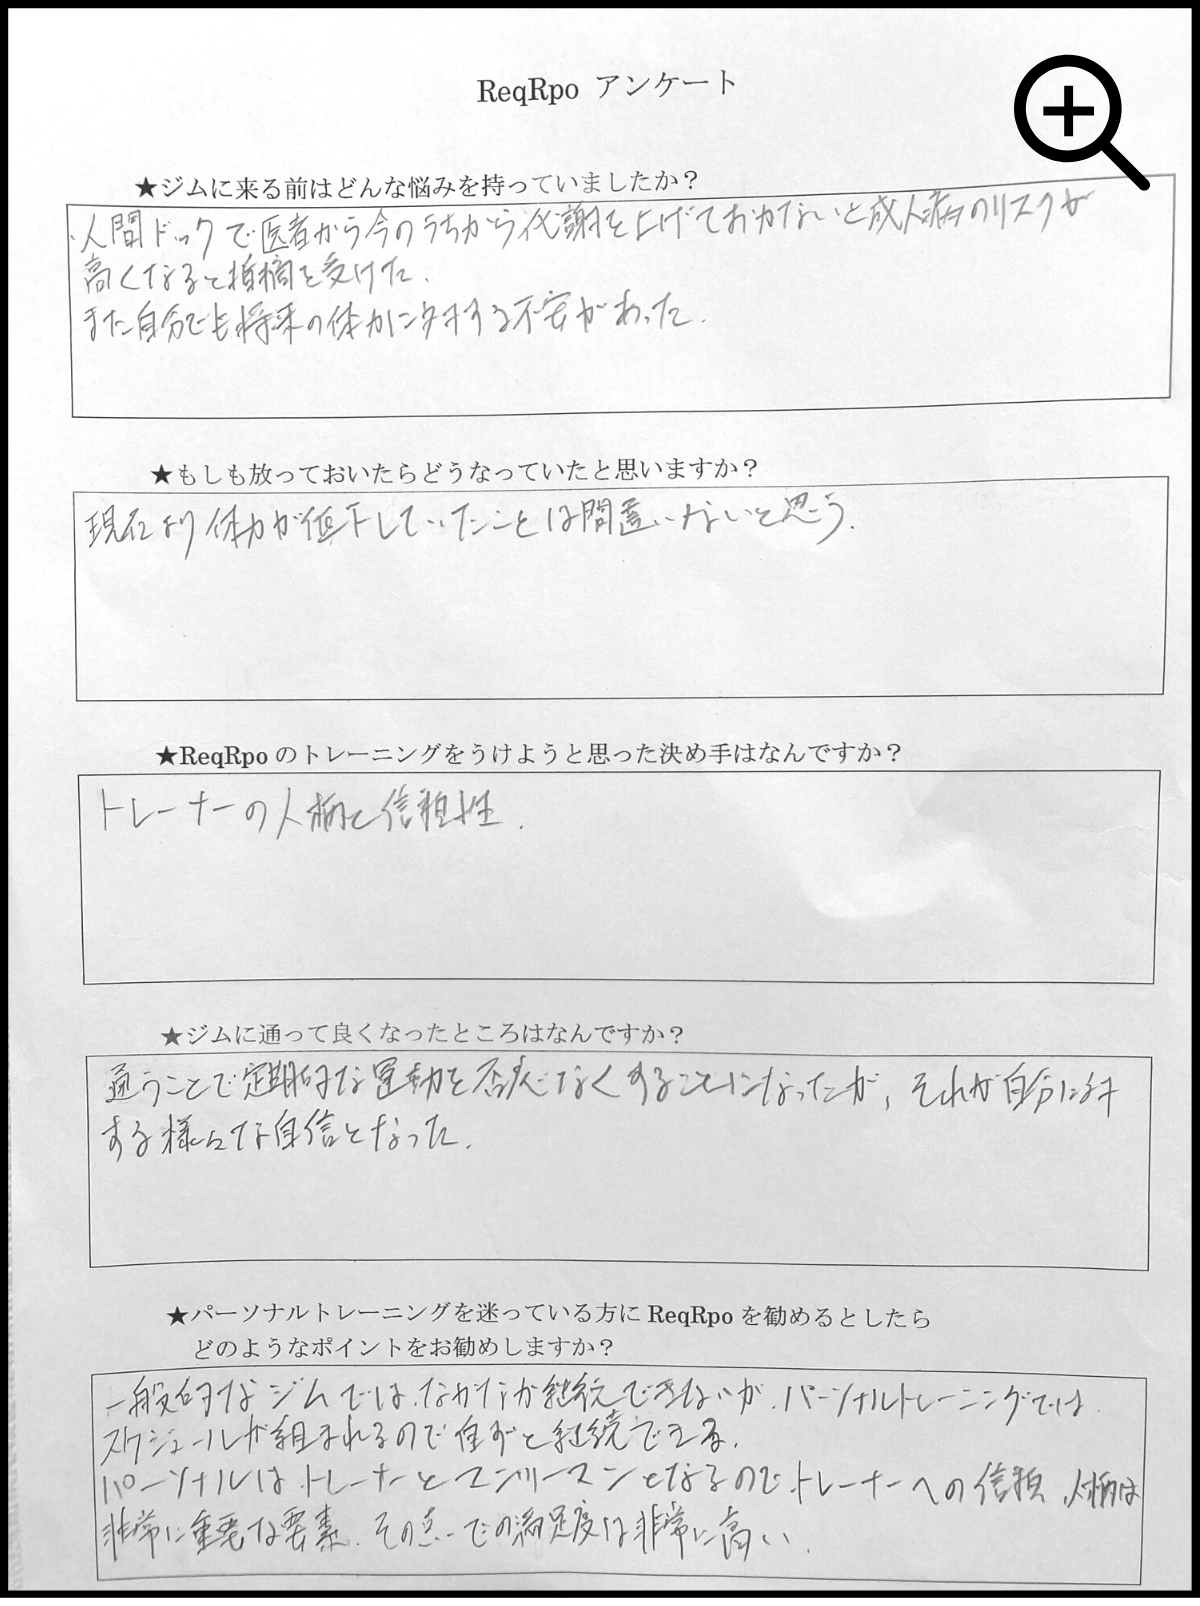 ReqRpo アンケート
★ジムに来る前はどんな悩みを持っていましたか？
人間ドックで医者から今のうちから代謝を上げておかないと成人病のリスクが
高くなると指摘を受けた.
また自分でも将来の体力に対する不安があった.
★もしも放っておいたらどうなっていたと思いますか？
現在より体力が低下していたことは間違いないと思う.
★ReqRpoのトレーニングをうけようと思った決め手はなんですか？
トレーナーの人柄と信頼性.
★ジムに通って良くなったところはなんですか？
通うことで定期的な運動を否応なくすることになったが, それが自分に対
する様々な自信となった.
★パーソナルトレーニングを迷っている方に ReqRpo を勧めるとしたら
どのようなポイントをお勧めしますか？
一般的なジムでは、なかなか継続できないが、パーソナルトレーニングでは
スケジュールが組まれるので自ずと継続できる.
パーソナルはトレーナーとマンツーマンとなるのでトレーナーへの信頼、人柄は
非常に重要な要素. その点での満足度は非常に高い.